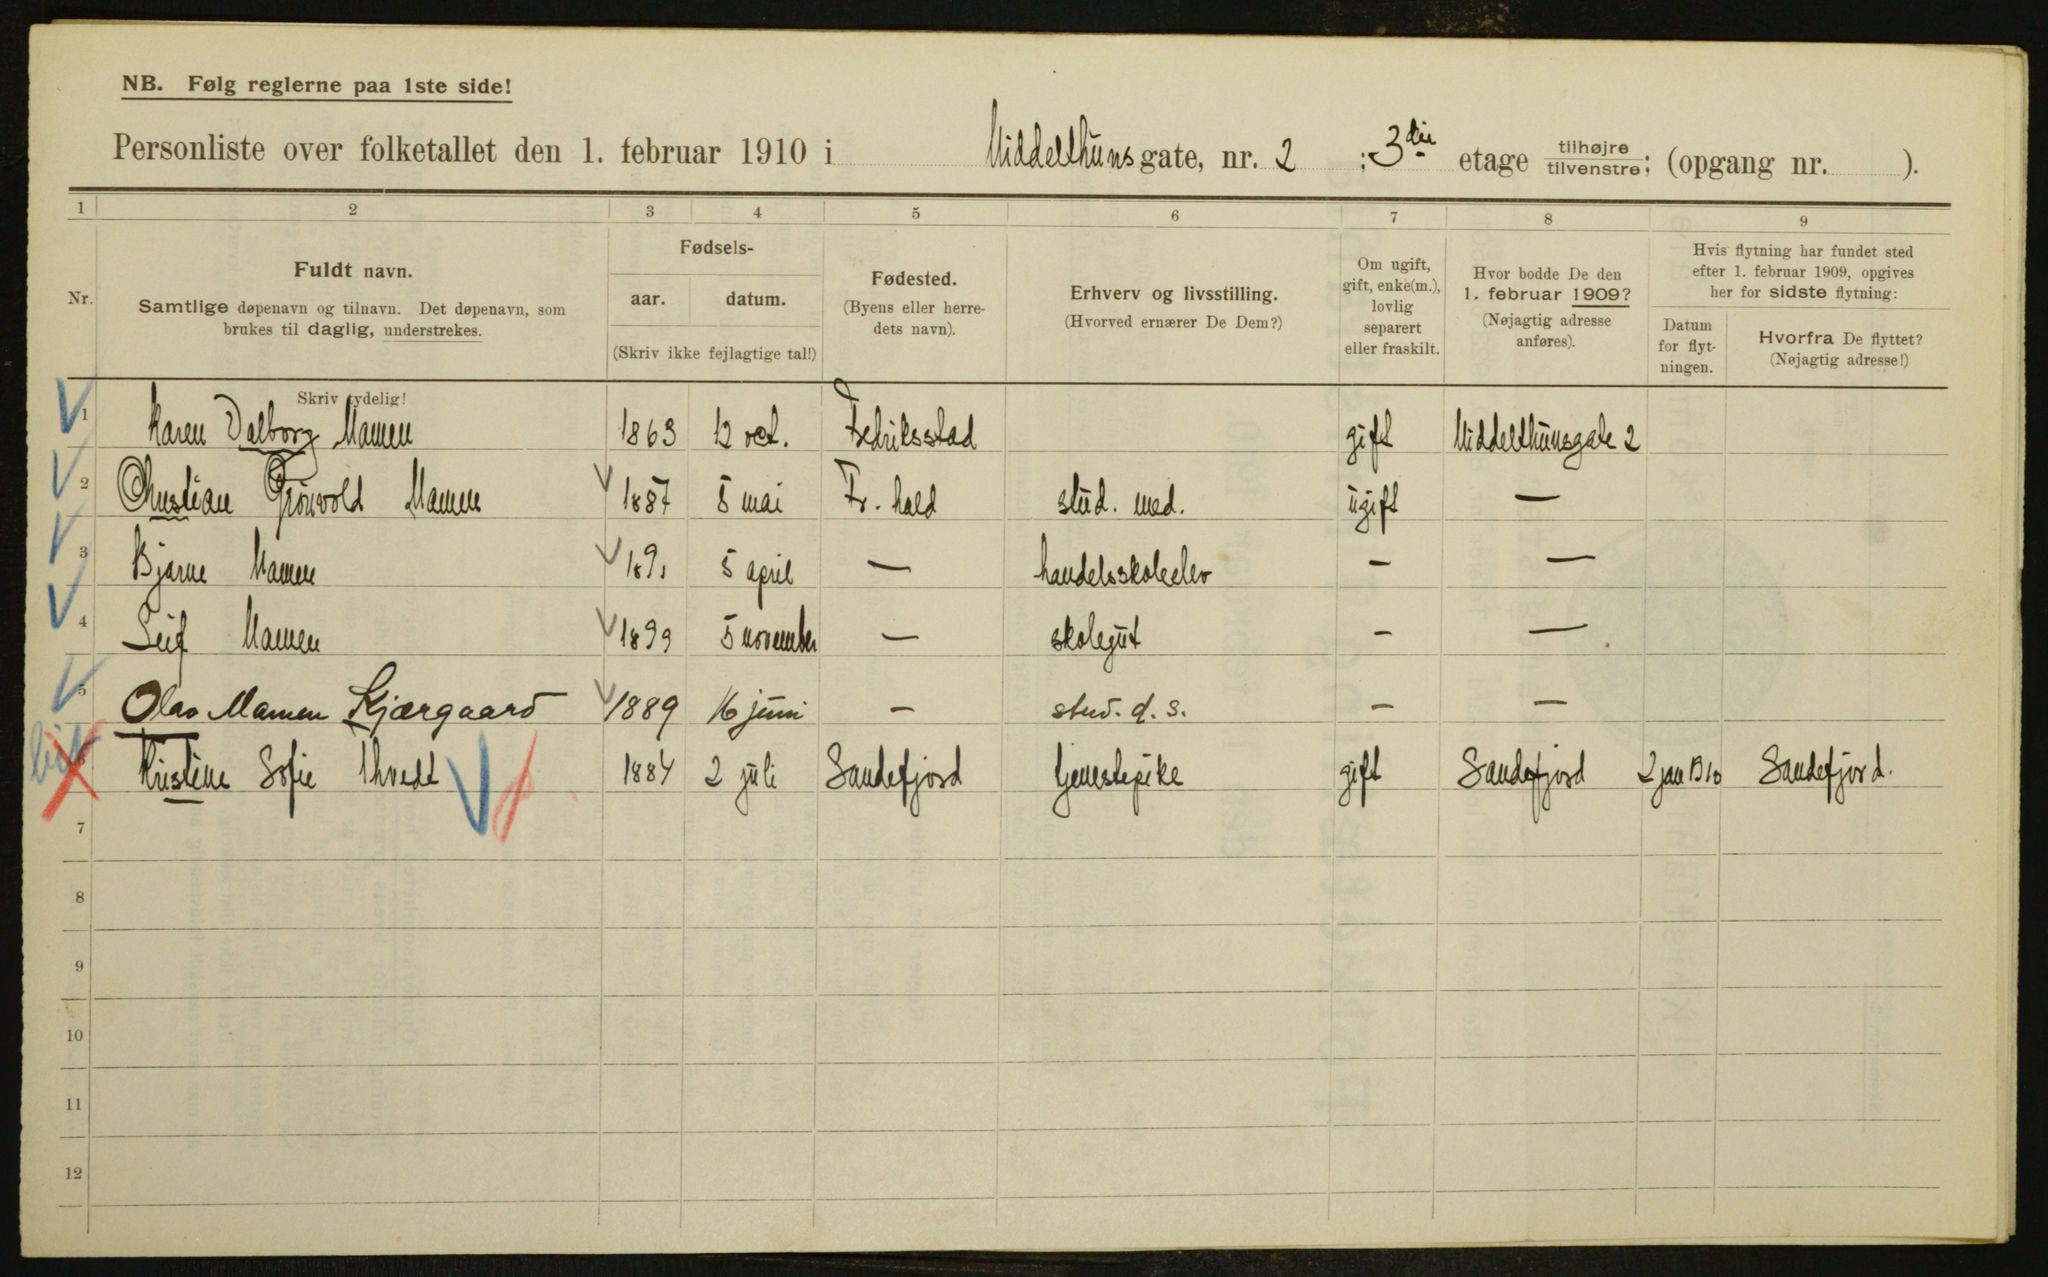 NB. Følg reglerne paa 1ste side!
Personliste over folketallet den 1. februar 1910 i Middelthuns gate, nr. 2 ; 3die etage tilhøjre tilvenstre; (opgang nr. ).
1 2 3 4 5 6 7 8 9
Nr.
Fuldt navn.
Samtlige døpenavn og tilnavn. Det døpenavn, som
brukes til daglig, understrekes.
Fødsels-
aar. datum.
(Skriv ikke fejlagtige tal!)
Fødested.
(Byens eller herre-
dets navn).
Erhverv og livsstilling.
(Hvorved ernærer De Dem?)
Om ugift,
gift, enke(m.),
lovlig
separert
eller fraskilt.
Hvor bodde De den
1. februar 1909?
(Nøjagtig adresse
anføres).
Hvis flytning har fundet sted
efter 1. februar 1909, opgives
her for sidste flytning:
Datum
for flyt-
ningen.
Hvorfra De flyttet?
(Nøjagtig adresse!)
Skriv tydelig!
1 Karen Valborg Mamen 1863 12 oct. Fredriksstad gift Middelthunsgate 2
2 Christian Grönvold Mamen 1887 5 mai Fr. hald stud. med. ugift —
3 Bjarne Mamen 1891 5 april — handelsskoleelev — —
4 Leif Mamen 1899 5 november — skolegut — —
5 Olav Mamen Kjærgaard 1889 16 juni — stud. — —
6 Kristine Sofie Thvedt 1884 2 juli Sandefjord tjenestepike gift Sandefjord 2 jan 1910 Sandefjord.
7
8
9
10
11
12